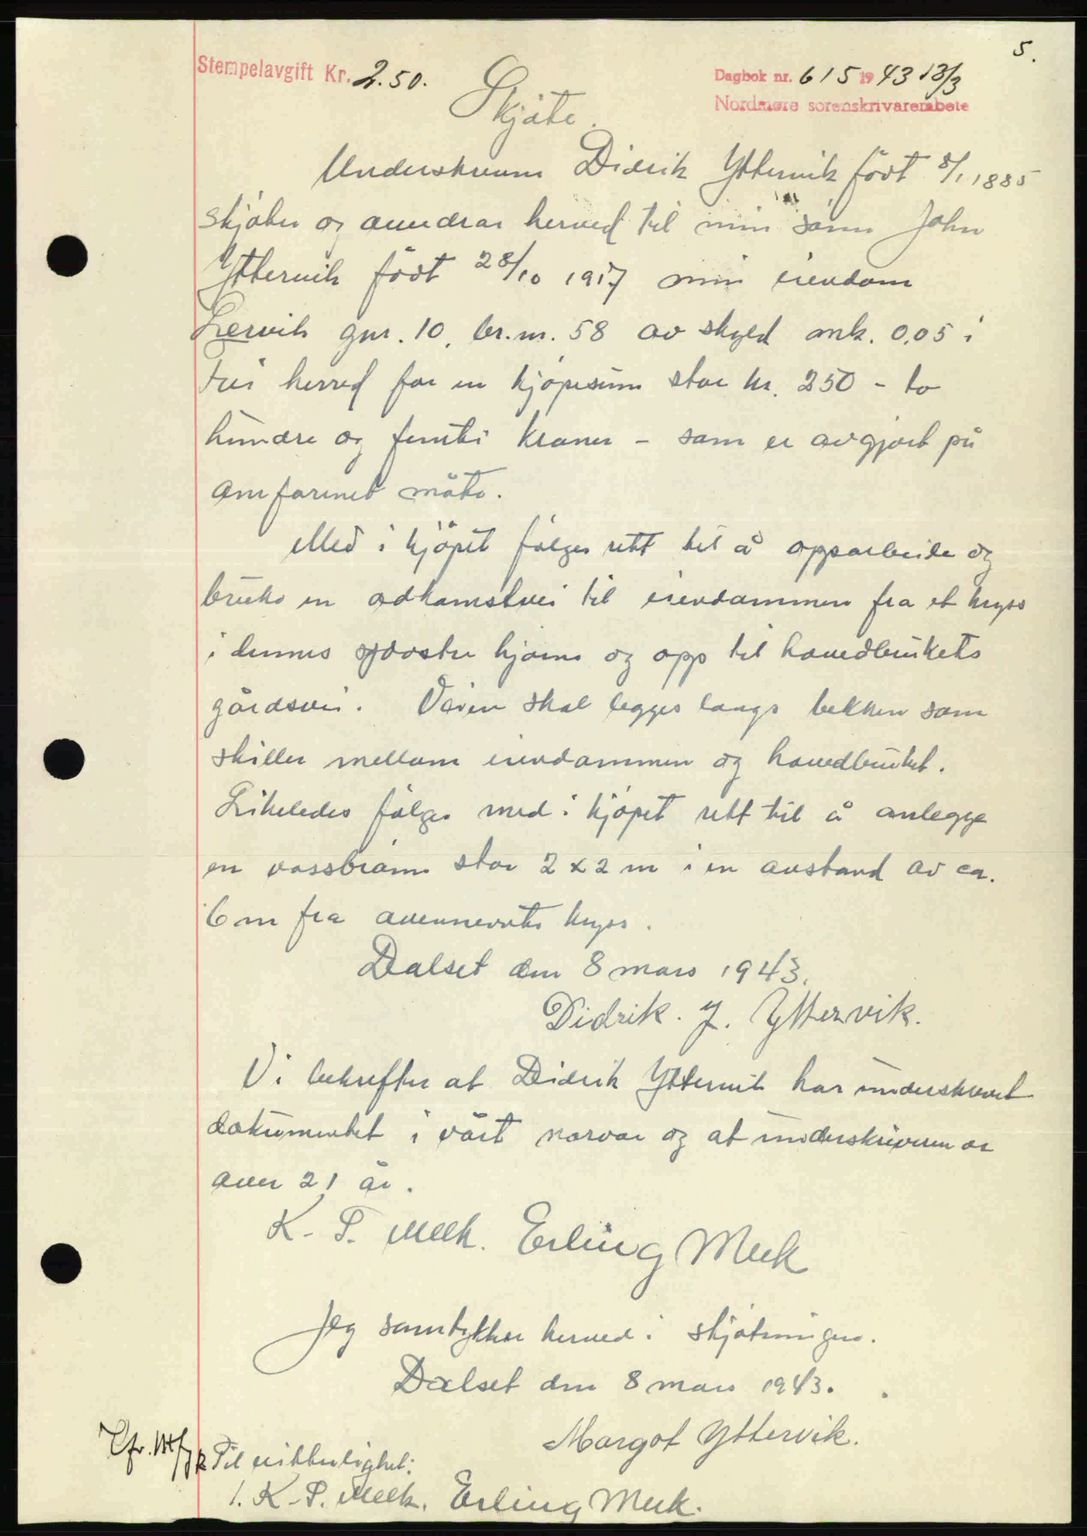 5.
Stempelavgift Kr. 2.50.
Dagbok nr. 615 1943 13/3
Nordmøre sorenskrivarembete
Skjøte.
Underskreven Didrik Yttervik født 8/1 1885
skjøter og avendrar herved til min sønn John
Yttervik født 28/10 1917 min eiendom
Lervik gnr. 10, br.nr. 58 av skyld mk. 0,05 i
herred for en kjøpesum stor kr. 250 - to
hundre og femti kroner - som er avgjort på
omforenet måte.
Med i kjøpet følger rett til å opparbeide og
bruke en adkomstvei til eiendommen fra et kryss
i dennes hjørne og opp til hovedbrukets
gårdsvei. Veien skal legges langs bekken som
skiller mellom eiendommen og hovedbruket.
Likeledes følger med i kjøpet rett til å anlegge
en vassbrønn stor 2 x 2 m i en avstand av ca.
6 m fra ovennevnte kryss.
Dalset den 8 mars 1943.
Didrik. J. Yttervik.
Vi bekrefter at Didrik Yttervik har underskrevet
dokumentet i vårt nærvær og at underskriveren er
over 21 år.
K. P. Meek. Erling Meek
Jeg samtykker herved i skjøtningen.
Dalset den 8 mars 1943.
Margot Yttervik.
Til vitterlighet:
1. K. P. Meek. Erling Meek.